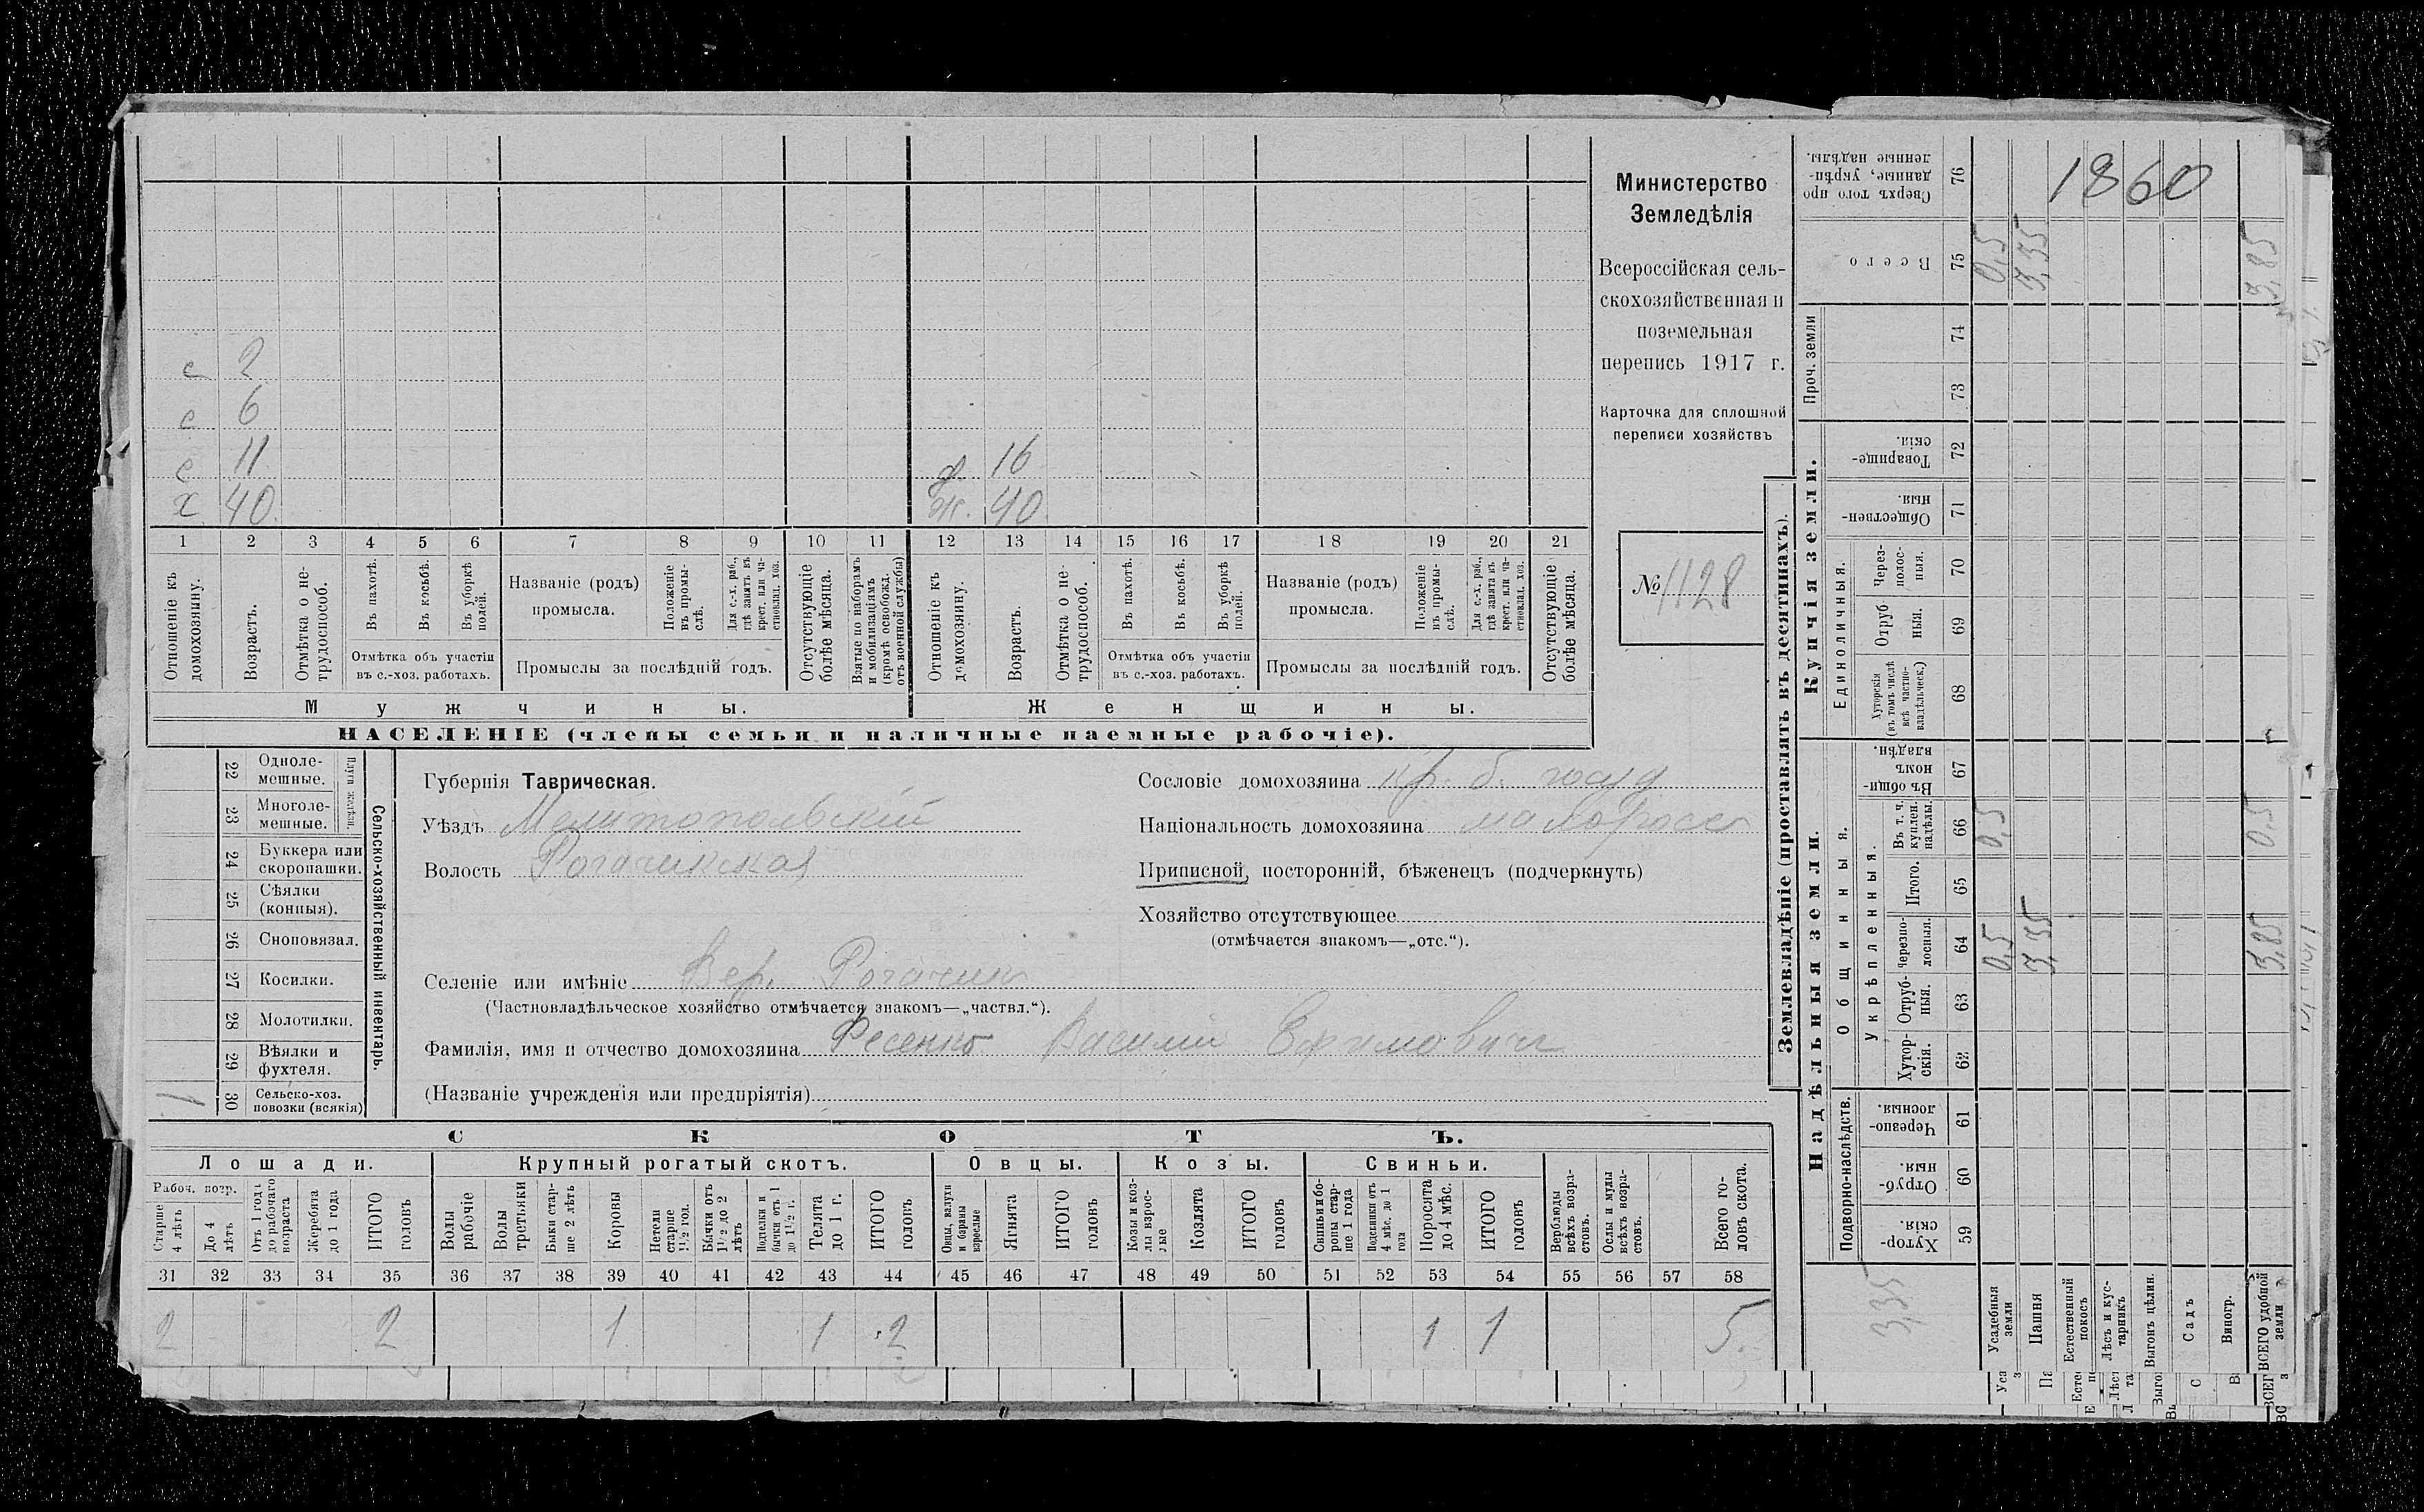 Министерство
Земледѣлія
Всероссійская сель-
скохозяйственная и
поземельная
перепись 1917 г.
Карточка для сплошной
переписи хозяйствъ
№ 1128
с 2
с 6
с 11
х 40
д. 16
ж. 40
1 2 3 4 5 6 7 8 9 10 11 12 13 14 15 16 17 18 19 20 21
Отношеніе къ домохозяину.
Возрастъ.
Отмѣтка о не-трудоспособ.
Въ пахотѣ.
Въ косьбѣ.
Въ уборкѣ полей.
Отмѣтка объ участіи
въ с.-хоз. работахъ.
Названіе (родъ)
промысла.
Положеніе въ промы-слѣ.
Для с.-х. раб., гдѣ занятъ въ крест. или ча-стновлад. хоз.
Промыслы за послѣдній годъ.
Отсутствующіе болѣе мѣсяца.
Взятые по наборамъ и мобилизаціямъ (кромѣ освобожд. отъ военной службы)
Отношеніе къ домохозяину.
Возрастъ.
Отмѣтка о не-трудоспособ.
Въ пахотѣ.
Въ косьбѣ.
Въ уборкѣ полей.
Отмѣтка объ участіи
въ с.-хоз. работахъ.
Названіе (родъ)
промысла.
Положеніе въ промы-слѣ.
Для с.-х. раб., гдѣ занята въ крест. или ча-стновлад. хоз.
Промыслы за послѣдній годъ.
Отсутствующіе болѣе мѣсяца.
Мужчины.
Женщины.
НАСЕЛЕНІЕ (члены семьи и наличные наемные рабочіе).
22 Одноле-мешные.
23 Многоле-мешные.
Плуги желѣзн.
24 Буккера или скоропашки.
25 Сѣялки (конныя).
26 Сноповязал.
27 Косилки.
28 Молотилки.
29 Вѣялки и фухтеля.
1 30 Сельско-хоз. повозки (всякія)
Сельско-хозяйственный инвентарь.
Губернія Таврическая.
Уѣздъ Мелитопольскій
Волость Рогачикская
Сословіе домохозяина кр. б. госуд
Національность домохозяина малоросс
Приписной, посторонній, бѣженецъ (подчеркнуть)
Хозяйство отсутствующее
(отмѣчается знакомъ—„отс.“).
Селеніе или имѣніе Вер. Рогачик
(Частновладѣльческое хозяйство отмѣчается знакомъ—„частвл.“).
Фамилія, имя и отчество домохозяина Фесенко Василій Ефимович
(Названіе учрежденія или предпріятія)
СКОТЪ.
Лошади.
Крупный рогатый скотъ.
Овцы.
Козы.
Свиньи.
Рабоч. возр.
Старше 4 лѣтъ
До 4 лѣтъ
Отъ 1 года до рабочаго возраста
Жеребята до 1 года
ИТОГО головъ
Волы рабочіе
Волы третьяки
Быки стар-ше 2 лѣтъ
Коровы
Нетели старше 1½ год.
Бычки отъ 1½ до 2 лѣтъ
Подтелки и бычки отъ 1 до 1½ г.
Телята до 1 г.
ИТОГО головъ
Овцы, валухи и бараны взрослые
Ягнята
ИТОГО головъ
Козы и коз-лы взрос-лые
Козлята
ИТОГО головъ
Свиньи и бо-ровы стар-ше 1 года
Подсвинки отъ 4 мѣс. до 1 года
Поросята до 4 мѣс.
ИТОГО головъ
Верблюды всѣхъ возра-стовъ.
Ослы и мулы всѣхъ возра-стовъ.
Всего го-ловъ скота.
31 32 33 34 35 36 37 38 39 40 41 42 43 44 45 46 47 48 49 50 51 52 53 54 55 56 57 58
2 2 1 1 2 1 1 5
Землевладѣніе (проставлять въ десятинахъ).
1860
Сверхъ того про-данные, укрѣп-ленные надѣлы. 76
Всего 75 0,5 3,35 3,85
Проч. земли
74
73
Купчія земли.
Товарище-скія. 72
Обществен-ныя. 71
Единоличныя.
Через-полос-ныя. 70
Отруб-ныя. 69
Хуторскія (въ томъ числѣ всѣ частно-владѣльческ.) 68
Надѣльныя земли.
Общинныя.
Въ общи-номъ владѣн. 67
Укрѣпленныя.
Въ т. ч. куплен. надѣлы. 66 0,5 0,5
Итого. 65
Черезпо-лосныя. 64 0,5 3,35 3,85
Отруб-ныя. 63
Хутор-скія. 62
Подворно-наслѣдств.
Черезпо-лосныя. 61
Отруб-ныя. 60
Хутор-скія. 59
3,35
Усадебныя земли
Пашня
Естественный покосъ
Лѣсъ и кус-тарникъ
Выгонъ цѣлин.
Садъ
Виногр.
ВСЕГО удобной земли